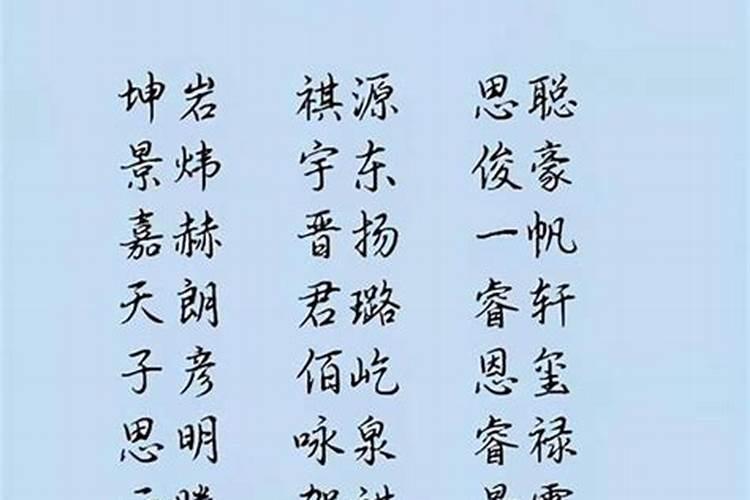 坤岩 祺源 思聪
景炜 宇东 俊豪
嘉赫 晋扬 一帆
天朗 君璐 睿轩
子彦 佰屹 恩玺
思明 咏泉 睿禄